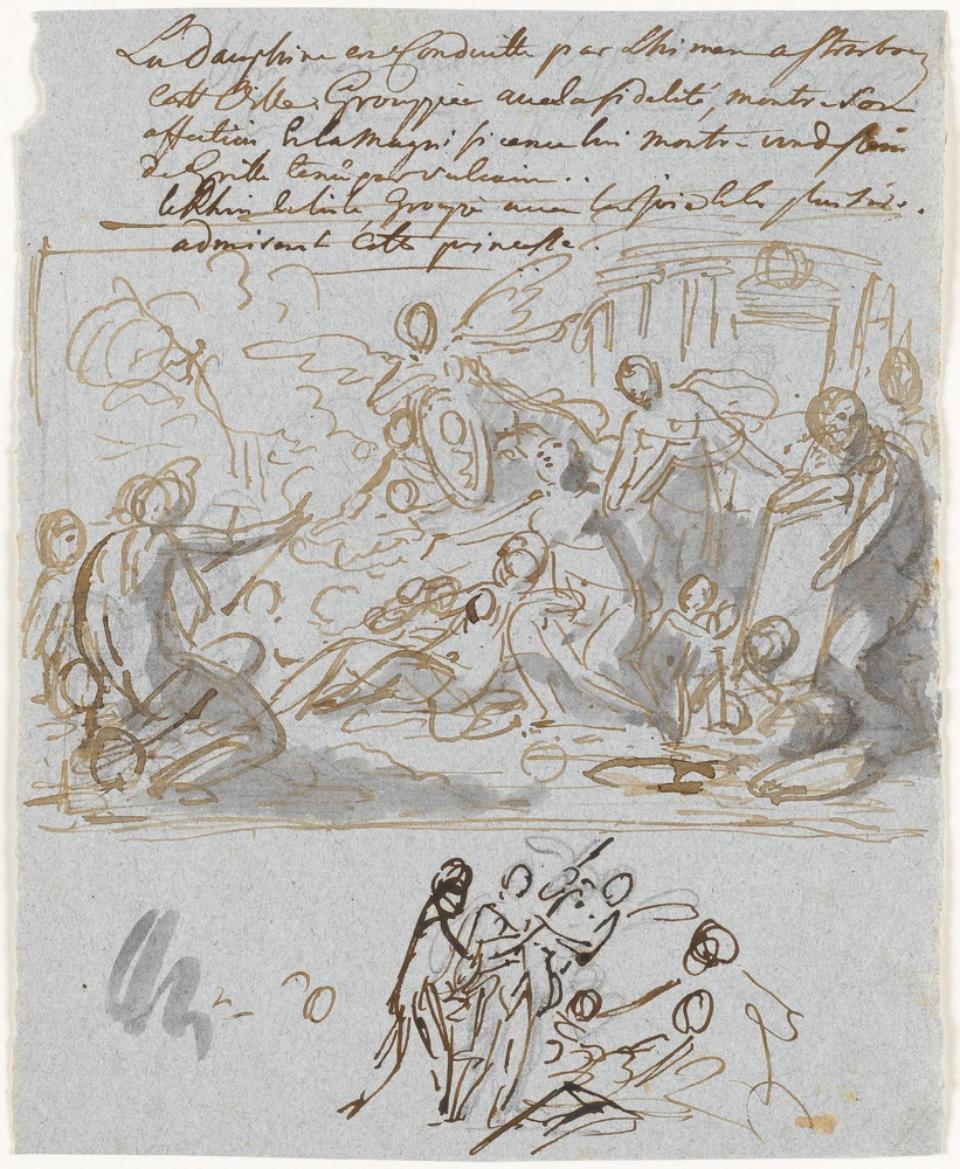 La dauphine en Conduitte par Lhimen a strasbourg
cette Ville Grouppée avec la fidelité, montre son
affection Et la Magnificence lui montre un dessein
de Grille tenû par vulcain . .
le Rhin Groupé avec
admirent cette princesse .